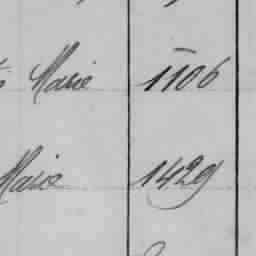 Marie 1106
Marie 1429